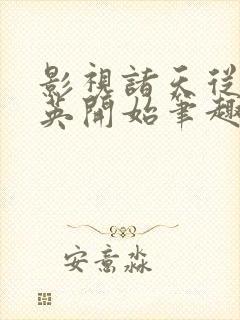 影視諸天從
英開始筆趣
安意淼